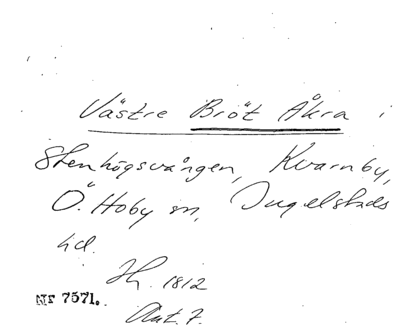 Västre Bröt Åkra i
Stenhögsvången, Kvarnby,
Ö. Hoby sn, Ingelstads
hd.
1812
Nr 7571.
Akt. 7.